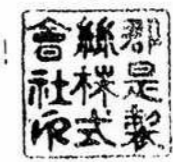 郡是製
絲株式
會社印